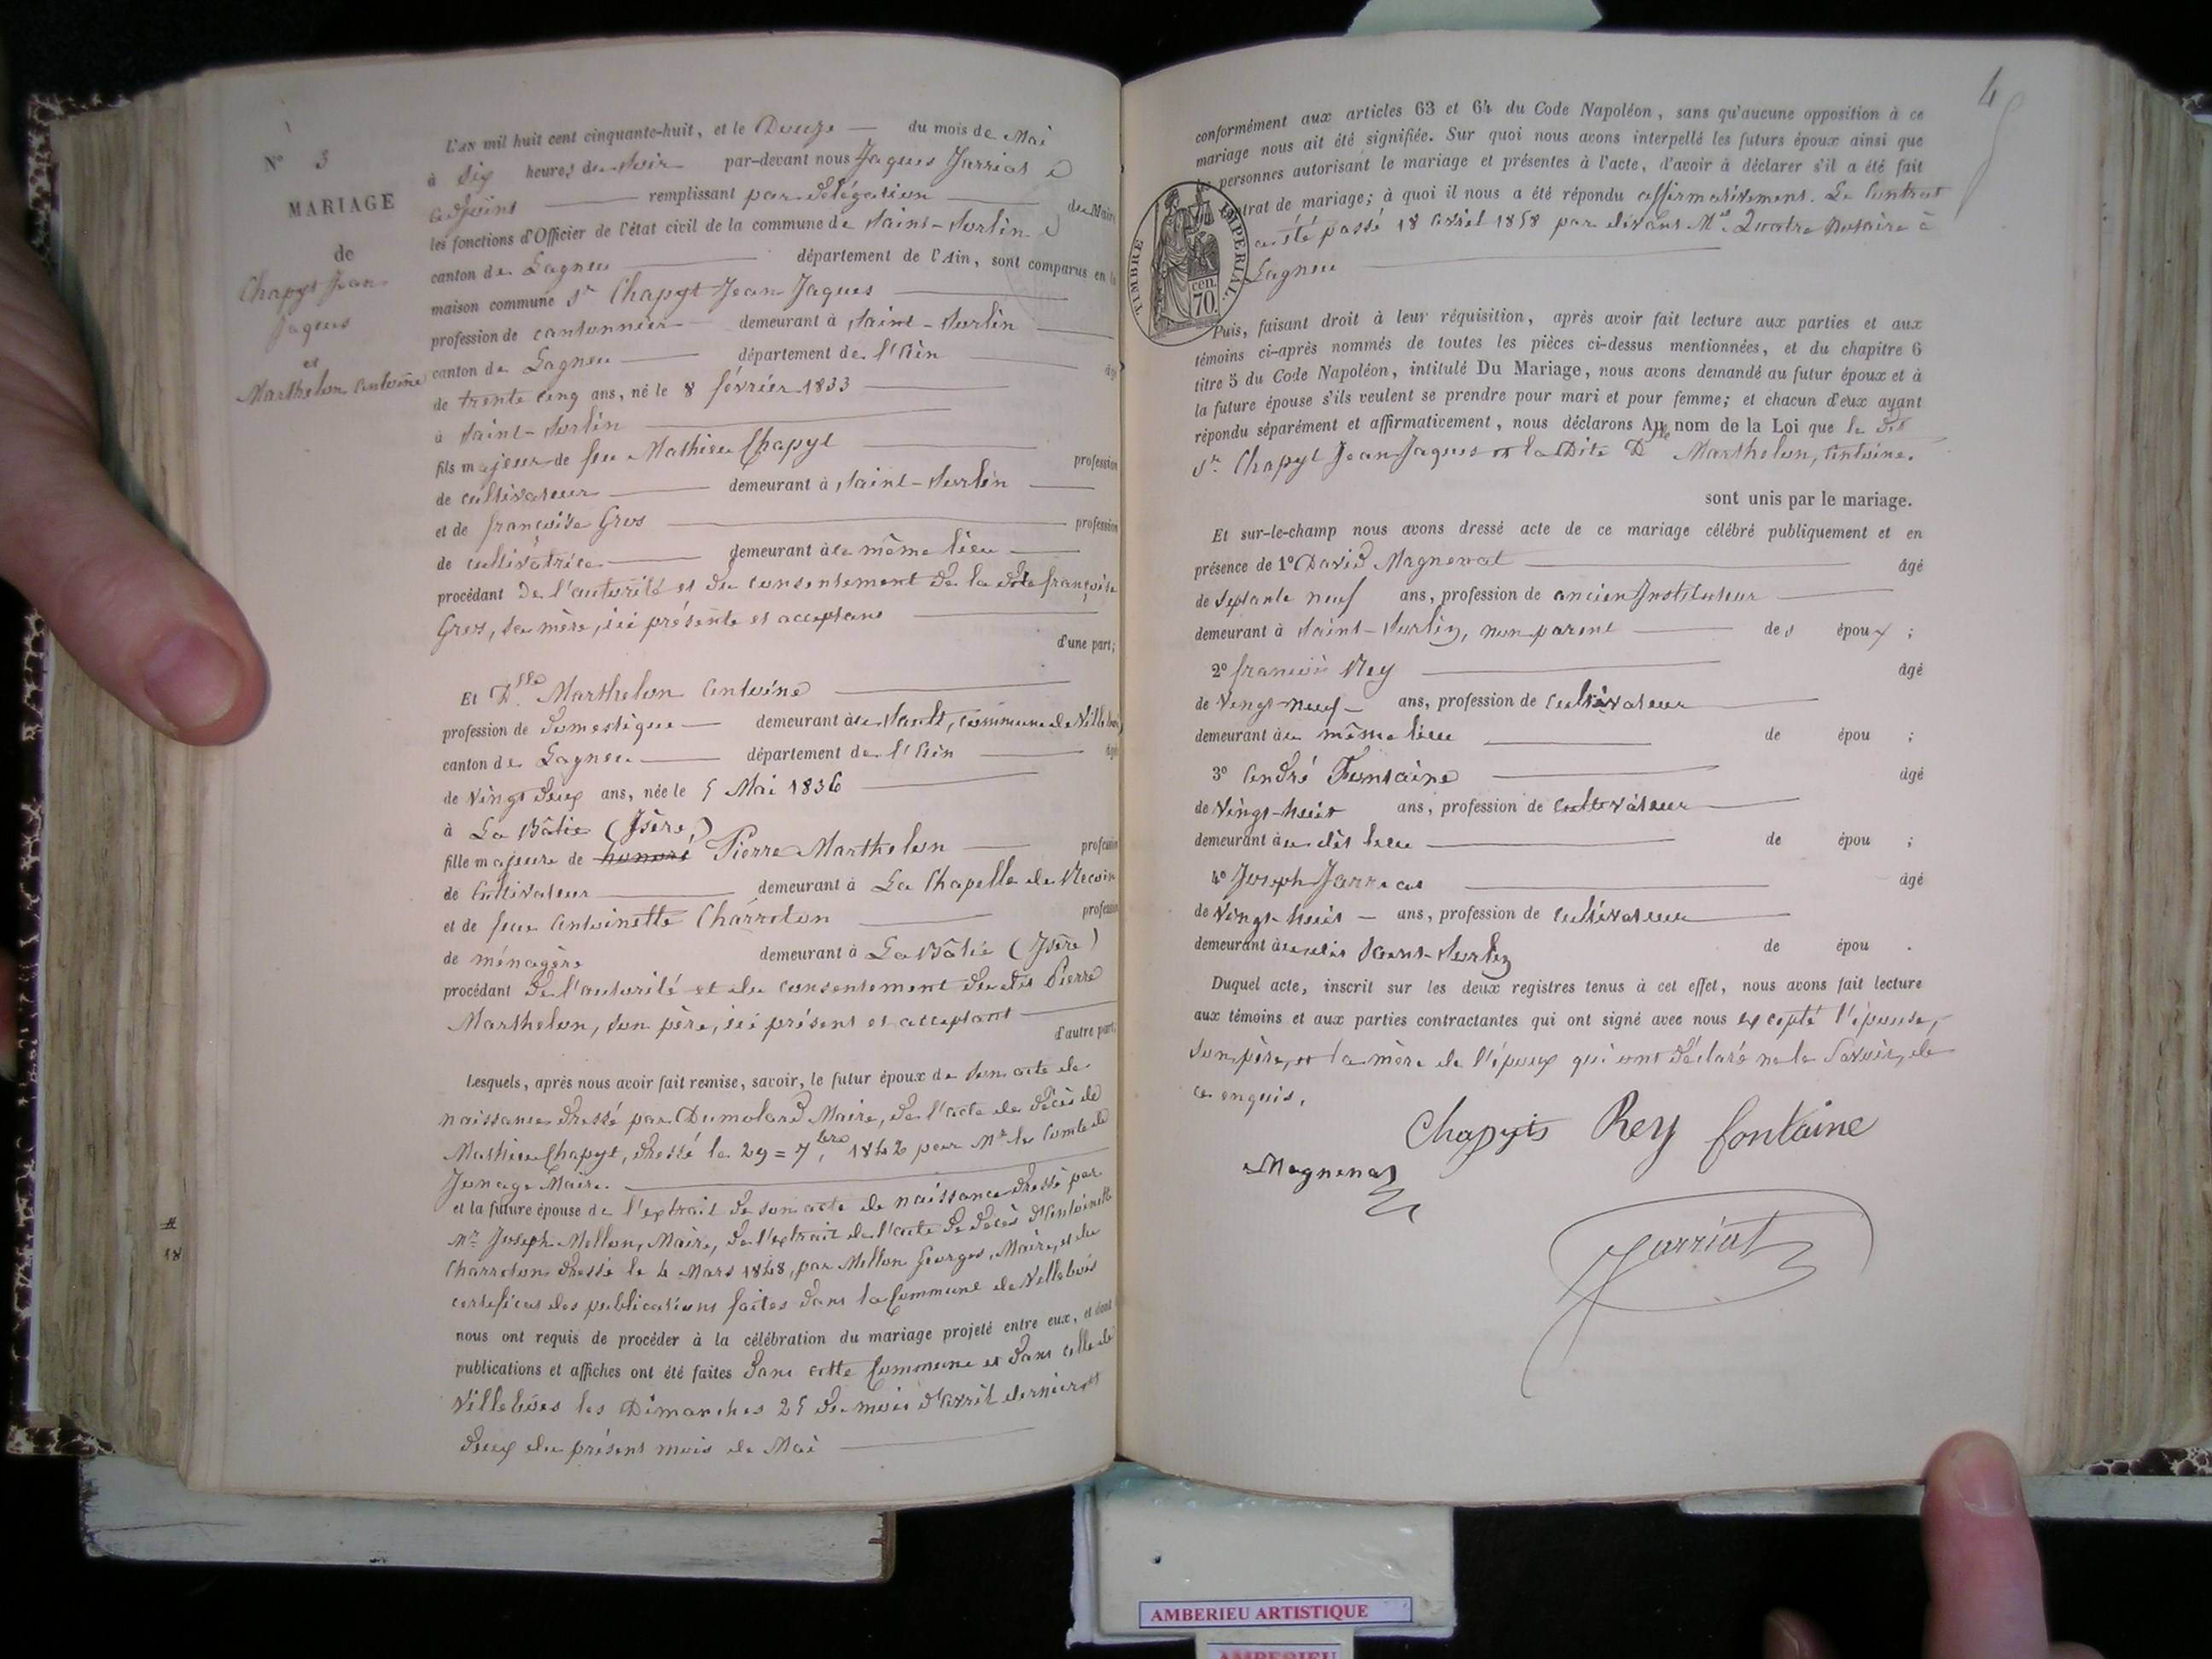 N° 3
MARIAGE
de
Chapyt Jean
Jaques
et
Marthelon Antoine
L'an mil huit cent cinquante-huit, et le Douze du mois de Mai
à six heures du Soir par-devant nous Jaques Jarriat
adjoint remplissant par délégation du Maire
les fonctions d'Officier de l'état civil de la commune de Saint-Sorlin
canton de Lagneu département de l'Ain, sont comparus en la
maison commune Sr Chapyt Jean Jaques
profession de cantonnier demeurant à Saint-Sorlin
canton de Lagneu département de l'Ain âgé
de trente cinq ans, né le 8 février 1833
à Saint-Sorlin
fils majeur de feu Mathieu Chapyt profession
de cultivateur demeurant à Saint-Sorlin
et de françoise Gros profession
de cultivatrice demeurant à ce même lieu
procédant de l'autorité et du consentement de la dite françoise
Gros, sa mère, ici présente et acceptant
d'une part;
Et Dlle Marthelon Antoine
profession de domestique demeurant à Sault, commune de Villebois
canton de Lagneu département de l'Ain âgé
de Vingt deux ans, née le 5 Mai 1836
à La Bâtie (Isère)
fille majeure de honoré Pierre Marthelon profession
de Cultivateur demeurant à La Chapelle de
et de feue Antoinette Charreton profession
de ménagère demeurant à La Bâtie (Isère)
procédant de l'autorité et du consentement du dit Pierre
Marthelon, son père, ici présent et acceptant
d'autre part.
Lesquels, après nous avoir fait remise, savoir, le futur époux de son acte de
naissance dressé par Dumolard Maire, de l'acte de décès de
Mathieu Chapyt, dressé le 29 = 7bre, 1842 par Mr le Comte de
Jonage Maire.
et la future épouse de l'extrait de son acte de naissance dressé par
Mr Joseph Mellon, Maire, de l'extrait de l'acte de décès d'Antoinette
Charreton dressé le 4 Mars 1848, par Mellon Georges, Maire, et du
certificat des publications faites dans la Commune de Villebois
nous ont requis de procéder à la célébration du mariage projeté entre eux, et dont
publications et affiches ont été faites dans cette Commune et dans celle de
Villebois les Dimanches 25 du mois d'avril dernier et
deux du présent mois de Mai
4
conformément aux articles 63 et 64 du Code Napoléon, sans qu'aucune opposition à ce
mariage nous ait été signifiée. Sur quoi nous avons interpellé les futurs époux ainsi que
les personnes autorisant le mariage et présentes à l'acte, d'avoir à déclarer s'il a été fait
trat de mariage; à quoi il nous a été répondu affirmativement. Le Contrat
a été passé 18 avril 1858 par devant Me Quatre Notaire à
Lagneu
TIMBRE IMPERIAL.
70 cen.
Puis, faisant droit à leur réquisition, après avoir fait lecture aux parties et aux
témoins ci-après nommés de toutes les pièces ci-dessus mentionnées, et du chapitre 6
titre 5 du Code Napoléon, intitulé Du Mariage, nous avons demandé au futur époux et à
la future épouse s'ils veulent se prendre pour mari et pour femme; et chacun d'eux ayant
répondu séparément et affirmativement, nous déclarons Au nom de la Loi que le dit
Sr. Chapyt Jean Jaques et la Dite Dlle Marthelon, Antoine.
sont unis par le mariage.
Et sur-le-champ nous avons dressé acte de ce mariage célébré publiquement et en
présence de 1° David Magnenat âgé
de Septante neuf ans, profession de ancien Instituteur
demeurant à Saint-Sorlin, non parent des époux;
2° francois Rey âgé
de Vingt-neuf ans, profession de Cultivateur
demeurant au même lieu de épou ;
3° André Fontaine âgé
de Vingt-huit ans, profession de Cultivateur
demeurant au dit lieu de épou ;
4° Joseph Jarriat âgé
de Vingt-huit ans, profession de Cultivateur
demeurant au dit Saint-Sorlin de épou .
Duquel acte, inscrit sur les deux registres tenus à cet effet, nous avons fait lecture
aux témoins et aux parties contractantes qui ont signé avec nous excepté l'épouse,
son père, et la mère de l'époux qui ont déclaré ne le Savoir, de
ce enquis.
Chapyts Rey fontaine
Magnenat
Jarriat
AMBERIEU ARTISTIQUE
AMBERIEU